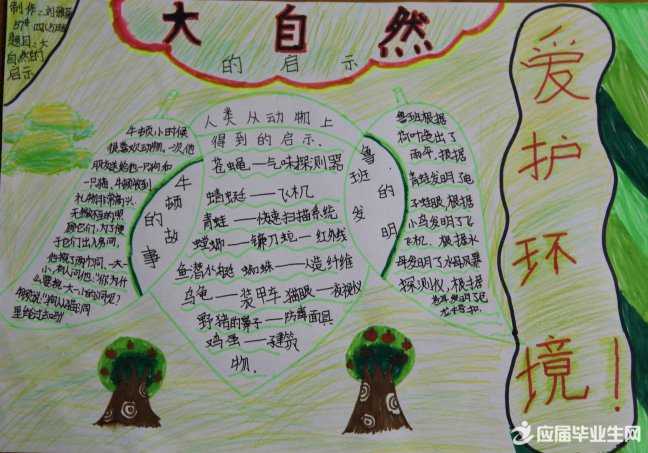 制作:刘
题目:大
自然的
启示
大自然
的启示
人类从动物上
得到的启示.
苍蝇——气味探测器
蜻蜓——飞机
青蛙——快速扫描系统
螳螂——镰刀 红外线
鱼潜小艇 蜘蛛——人造纤维
乌龟——装甲车.猫眼——夜视仪
野猪的鼻子——防毒面具
鸡蛋——建筑
物.
牛顿的故事
牛顿小时候
很喜欢动物.一次他
朋友送给他一只狗和
一只猫.牛顿收到
礼物非常高兴.
它们出入房间,
他挖了两个洞,一大
一小,有人问他:"你为什
么要挖一大一小的洞呢?
鲁班的发明
鲁班根据
荷叶发明了
雨伞.根据
青蛙发明了电
子蛙眼.根据
小鸟发明了飞
飞机.根据水
母发明了水母风暴
探测仪,根据
爱护环境!
应届毕业生网